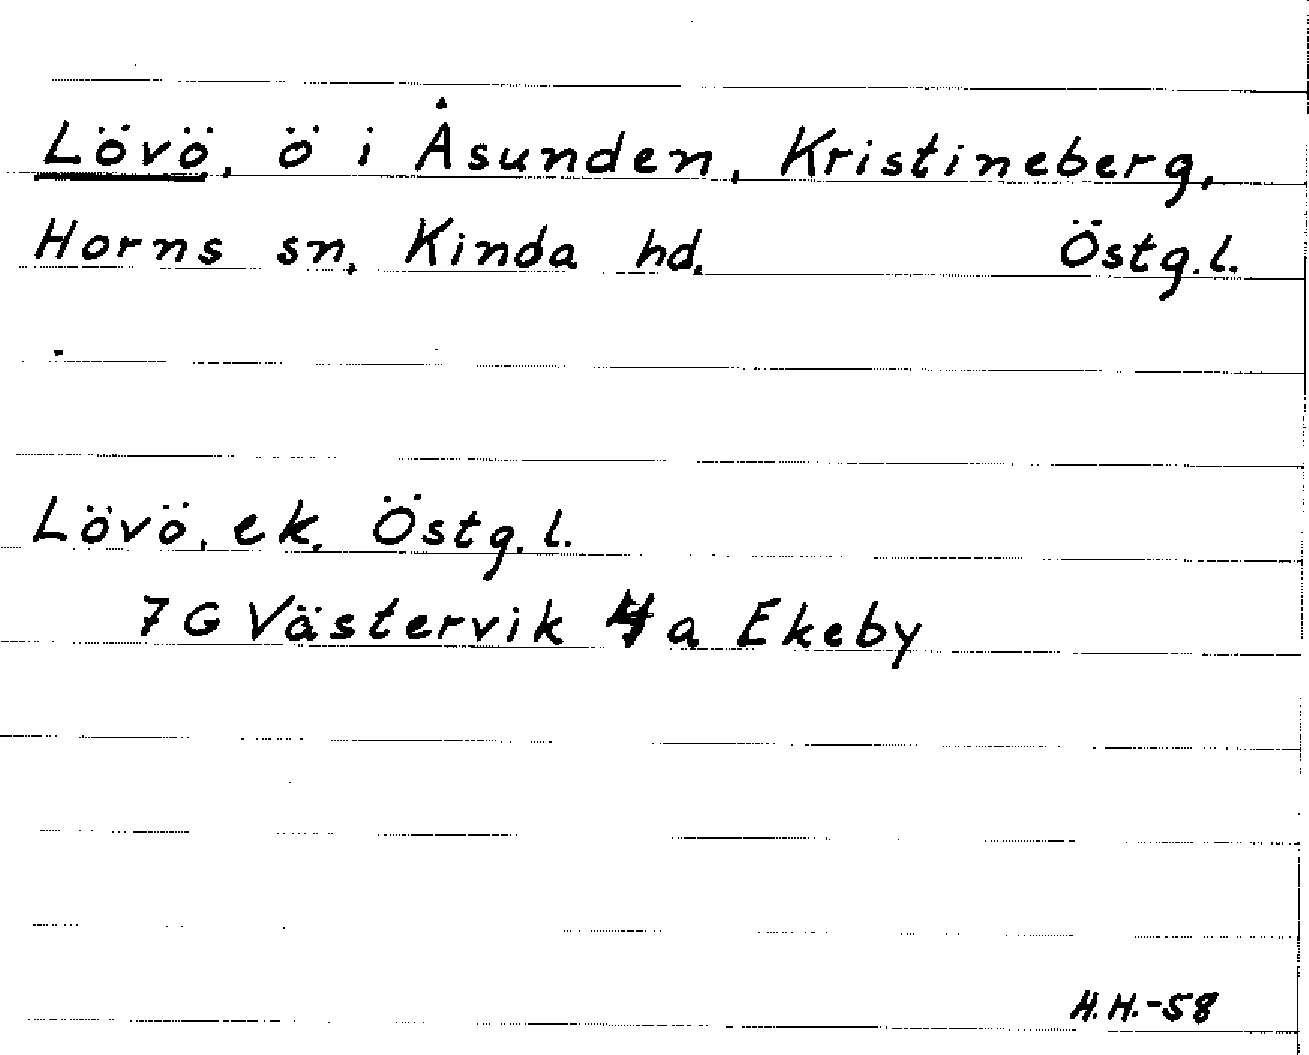 Lövö, ö i Åsunden, Kristineberg,
Horns sn, Kinda hd. Östg.l.
Lövö, ek. Östg.l.
7 G Västervik 4 a Ekeby
H.H.-58